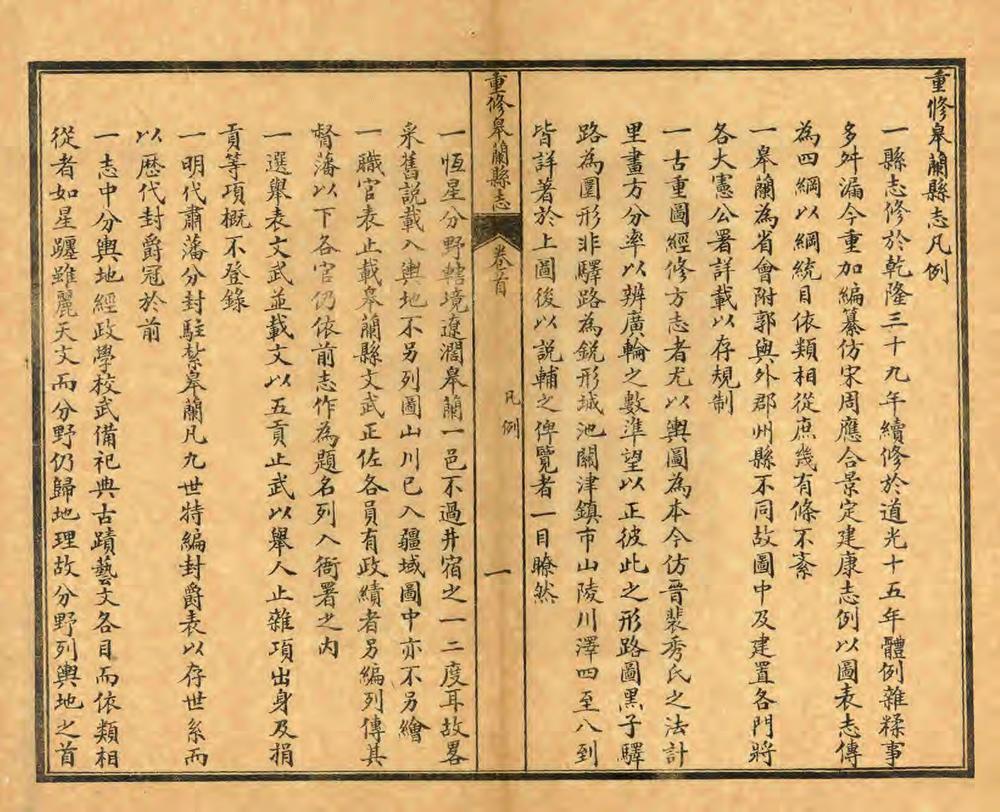 重修皋蘭縣志凡例
一縣志修於乾隆三十九年續修於道光十五年體例雜糅事
多舛漏今重加編纂仿宋周應合景定建康志例以圖表志傳
為四綱以綱統目依類相從庶幾有條不紊
一皋蘭為省會附郭與外郡州縣不同故圖中及建置各門將
各大憲公署詳載以存規制
一古重圖經修方志者尤以輿圖為本今仿晉裴秀氏之法計
里畫方分率以辨廣輪之數準望以正彼此之形路圖黑子驛
路為圍形非驛路為銳形城池關津鎮市山陵川澤四至八到
皆詳著於上圖後以說輔之俾覽者一目瞭然
重修皋蘭縣志
卷首
凡例
一
一恆星分野轄境遼濶皋蘭一邑不過井宿之一二度耳故畧
采舊說載入輿地不另列圖山川已入疆域圖中亦不另繪
一職官表止載皋蘭縣文武正佐各員有政績者另編列傳其
督藩以下各官仍依前志作為題名列入衙署之內
一選舉表文武並載文以五貢止武以舉人止雜項出身及捐
貢等項概不登錄
一明代肅藩分封駐紮皋蘭凡九世特編封爵表以存世系而
以歷代封爵冠於前
一志中分輿地經政學校武備祀典古蹟藝文各目而依類相
從者如星躔雖麗天文而分野仍歸地理故分野列輿地之首